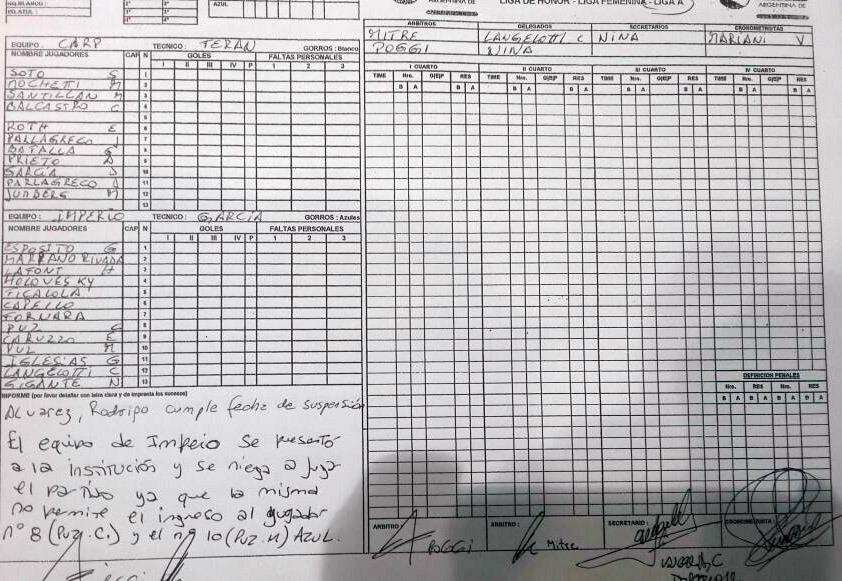 AZUL
LIGA DE HONOR - LIGA FEMENINA - LIGA A
ARGENTINA DE
ARBITROS DELEGADOS SECRETARIOS CRONOMETRISTAS
MITRE LANGELOTTI C NINA MARIANI V
POGGI NINA
EQUIPO : CARP TECNICO : TERAN GORROS : Blanco
NOMBRE JUGADORES CAP N GOLES FALTAS PERSONALES
I II III IV P 1 2 3
SOTO S 1
MOCHETTI M 2
SANTILLAN M 3
BALCASTRO C 4
5
ROTH E 6
PALLAGRECO J 7
BATALLA G 8
PRIETO A 9
GARCIA J 10
PARLAGRECO A 11
JUNBERG M 12
13
EQUIPO : IMPERIO TECNICO : GARCIA GORROS : Azules
NOMBRE JUGADORES CAP N GOLES FALTAS PERSONALES
I II III IV P 1 2 3
ESPOSITO G 1
MARRANO RIVADA 2
LAFONT H 3
HOLOVESKY 4
TICALOLA 5
CAPELLO 6
FORNARA 7
PUZ C 8
CARUZZO E 9
PUZ M 10
IGLESIAS G 11
LANGELOTTI C 12
GIGANTE N 13
I CUARTO II CUARTO III CUARTO IV CUARTO
TIME Nro. G|E|P RES TIME Nro. G|E|P RES TIME Nro. G|E|P RES TIME Nro. G|E|P RES
B A B A B A B A B A B A B A B A
DEFINICION PENALES
Nro. RES Nro. RES
B A B A B A B A
INFORME (por favor detallar con letra clara y de imprenta los sucesos)
Alvarez, Rodrigo cumple fecha de suspensión
El equipo de Impeio se presentó
a la institución y se niega a juga
el partido ya que la misma
no permite el ingreso al jugador
nº 8 (Puz.C.) y el nº 10 (Puz.M) AZUL.
ARBITRO : POGGI ARBITRO : Mitre SECRETARIO : CRONOMETRISTA :